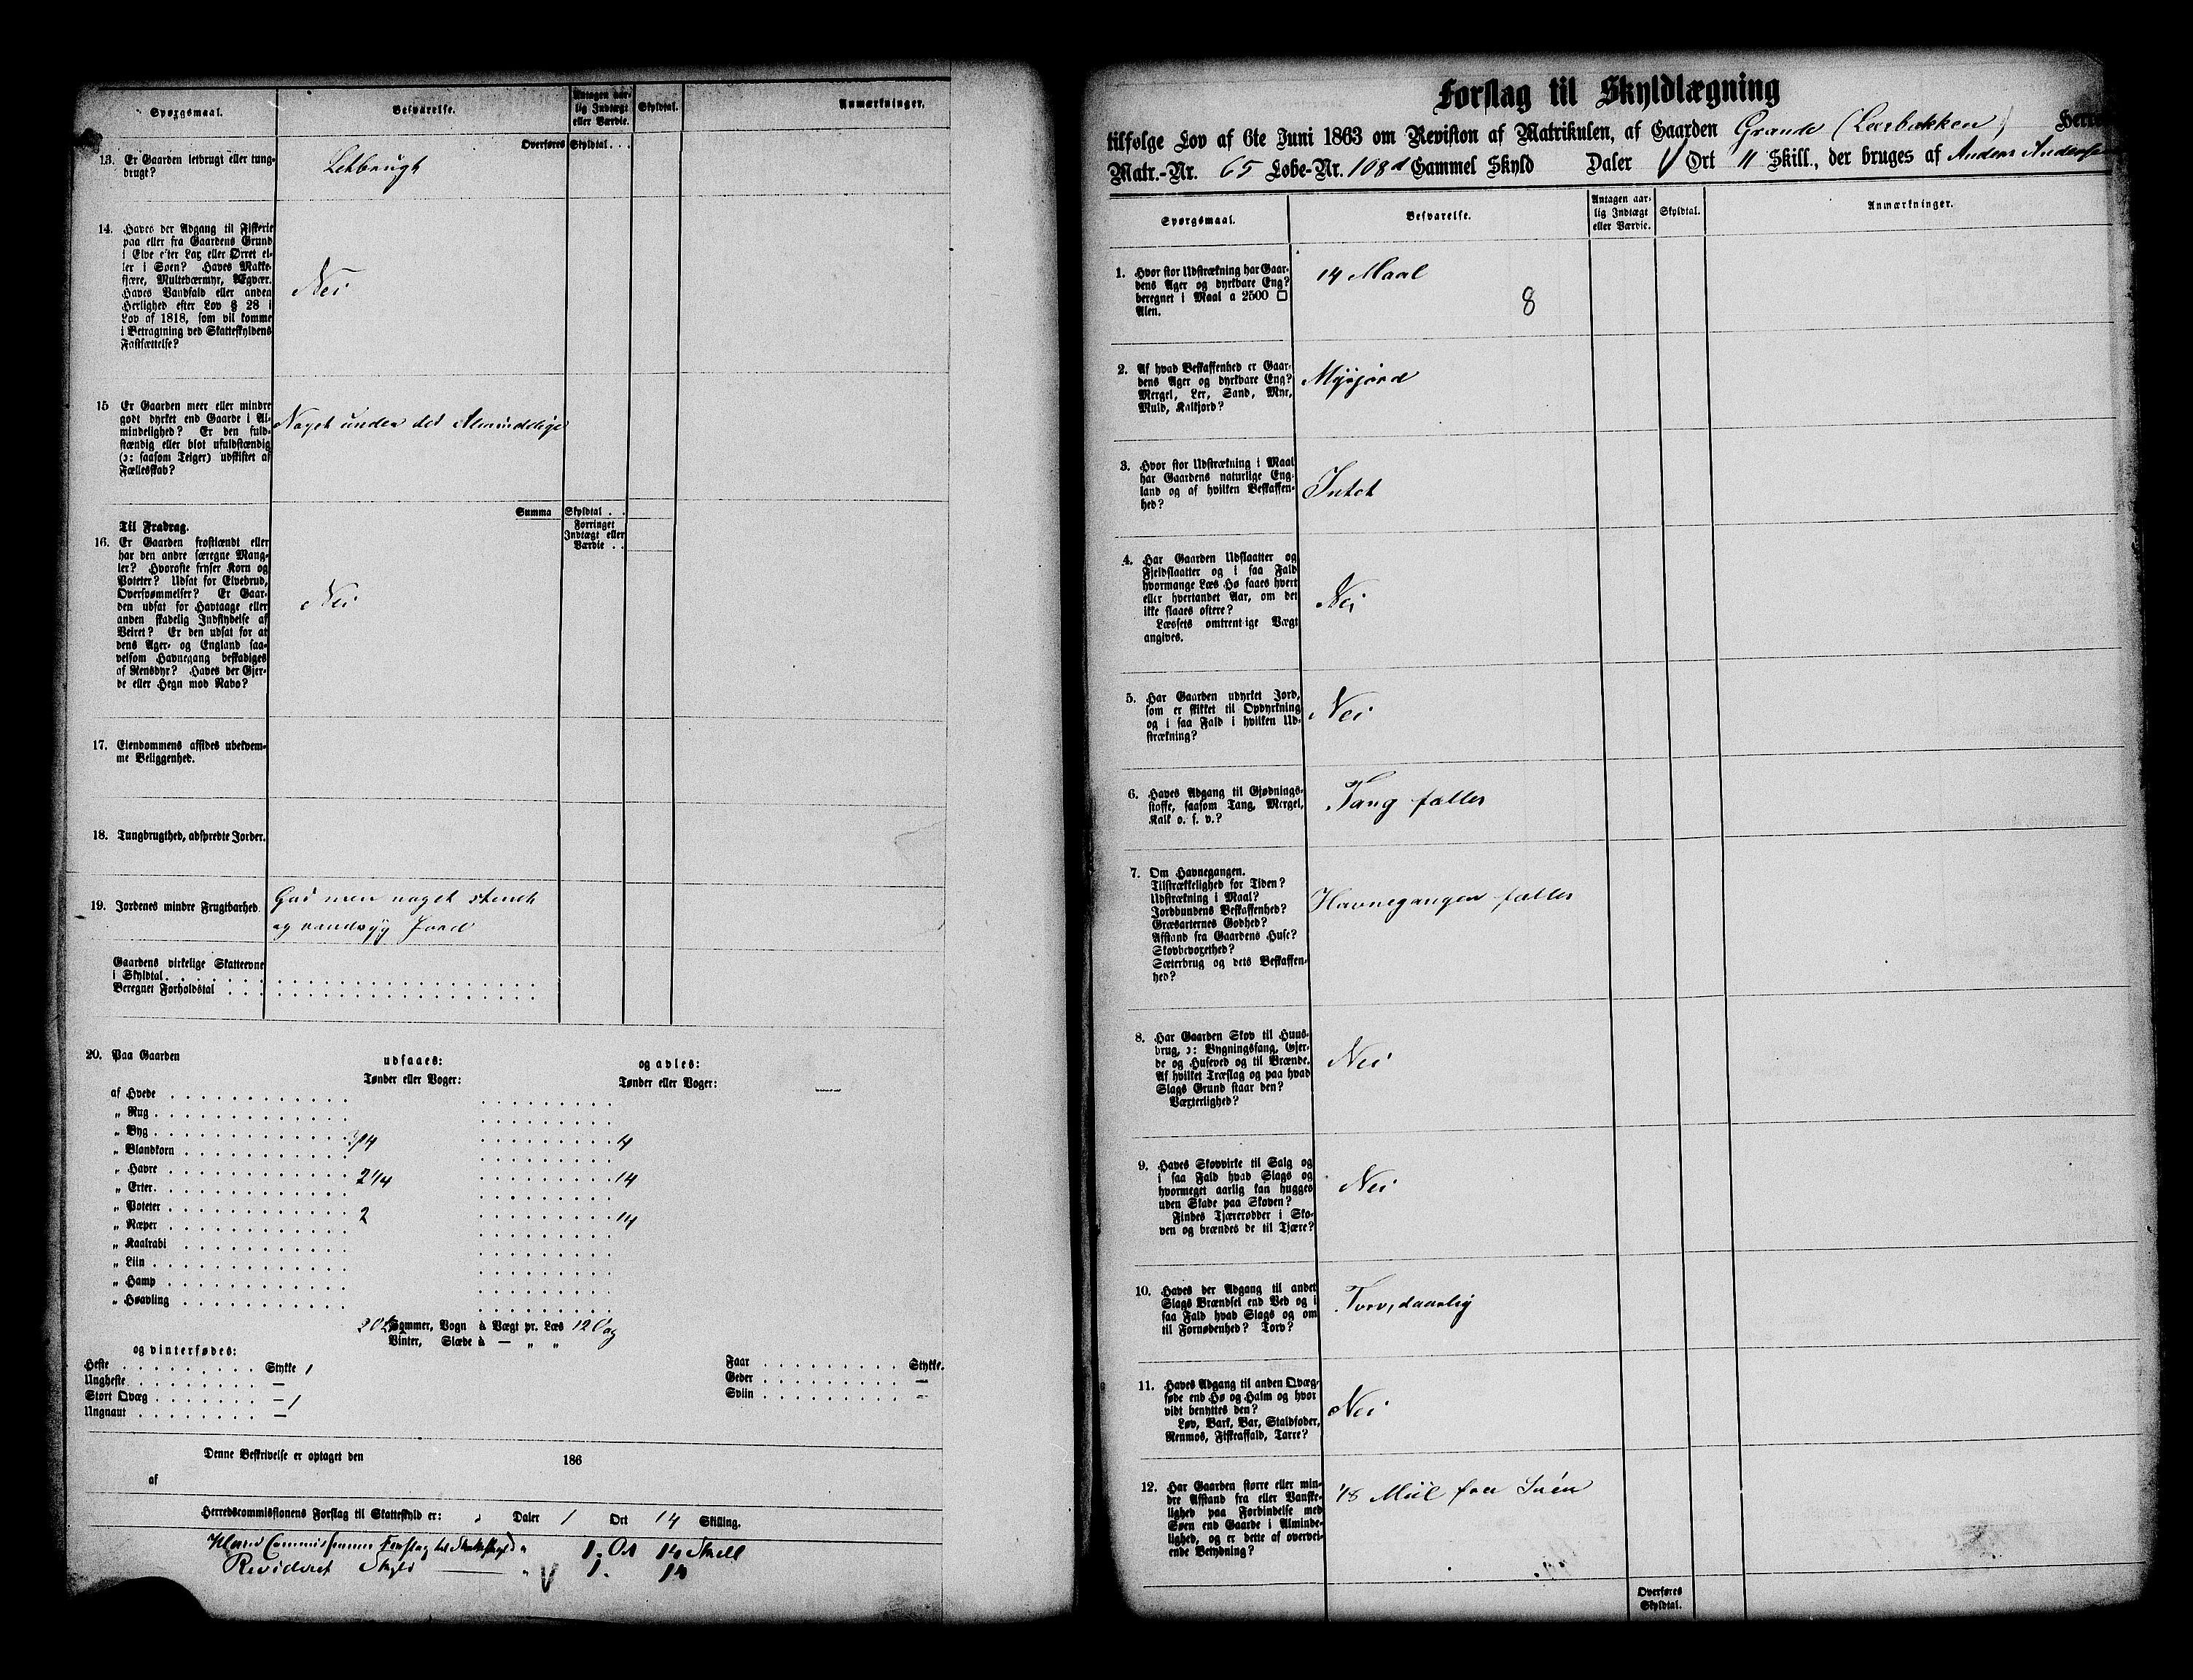 Spørgsmaal.
Besvarelse.
Antagen aar-
lig Indtægt
eller Værdie.
Skyldtal.
Anmærkninger.
Overføres Skyldtal. . .
13. Er Gaarden letbrugt eller tung-
brugt?
Letbrugt
14. Haves der Adgang til Fiskerie
paa eller fra Gaardens Grund
i Elve efter Lax eller Ørret el-
ler i Søen? Haves Makke-
fjære, Multebærmyr, Ægvær.
Haves Vandfald eller anden
Herlighed efter Lov § 28 i
Lov af 1818, som vil komme
i Betragtning ved Skatteskyldens
Fastsættelse?
Nei
15 Er Gaarden meer eller mindre
godt dyrket end Gaarde i Al-
mindelighed? Er den fuld-
stændig eller blot ufuldstændig
(ɔ: saasom Teiger) udskiftet af
Fællesskab?
Noget under det Almindelige
Summa Skyldtal . .
Forringet
Indtægt eller
Værdie . .
Til Fradrag.
16. Er Gaarden frostlændt eller
har den andre særegne Mang-
ler? Hvorofte fryser Korn og
Poteter? Udsat for Elvebrud,
Oversvømmelser? Er Gaar-
den udsat for Havtaage eller
anden skadelig Indflydelse af
Veiret? Er den udsat for at
dens Ager- og England saa-
velsom Havnegang beskadiges
af Rensdyr? Haves der Gjer-
de eller Hegn mod Nabo?
Nei
17. Eiendommens affides ubekvem-
me Beliggenhed.
18. Tungbrugthed, adspredte Jorder.
19. Jordenes mindre Frugtbarhed.
God men noget steneth
og Jord
Gaardens virkelige Skatteevne
i Skyldtal . . . .
Beregnet Forholdstal . . .
20. Paa Gaarden
udsaaes:
Tønder eller Voger:
og avles:
Tønder eller Voger:
af Hvede
„ Rug
„ Byg
„ Blandkorn 3/4 4
„ Havre
„ Erter 2 1/4 14
„ Poteter
„ Næper 2 14
„ Kaalrabi
„ Liin
„ Hamp
„ Høavling
20 Sommer, Vogn à Vægt pr. Læs 12
Vinter, Slæde à — „ „
og vinterfødes:
Heste Stykke 1
Ungheste —
Stort Qvæg — 1
Ungnaut —
Faar Stykke.
Geder —
Sviin —
Denne Beskrivelse er optaget den 186
af
Herredscommissionens Forslag til Skatteskyld er: „ Daler 1 Ort 14 Skilling.
Commissionens Forslag til Skatteskyld „ 1. Ort 14 Skill
Revideret Skyld — „ 1. 14
Forslag til Skyldlægning
tilfølge Lov af 6te Juni 1863 om Revision af Matrikulen, af Gaarden Grande (Leerbakken) Herre
Matr.-Nr. 65 Løbe-Nr. 108d Gammel Skyld Daler Ort 11 Skill., der bruges af Anders Andersen
Spørgsmaal.
Besvarelse.
Antagen aar-
lig Indtægt
eller Værdie.
Skyldtal.
Anmærkninger.
1. Hvor stor Udstrækning har Gaar-
dens Ager og dyrkbare Eng?
beregnet i Maal a 2500 □
Alen.
14 Maal
8
2. Af hvad Beskaffenhed er Gaar-
dens Ager og dyrkbare Eng?
Mergel, Ler, Sand, Myr,
Muld, Kalkjord?
Myrjord
3. Hvor stor Udstrækning i Maal
har Gaardens naturlige Eng-
land og af hvilken Beskaffen-
hed?
Intet
4. Har Gaarden Udslaatter og
Fjeldslaatter og i saa Fald
hvormange Læs Hø faaes hvert
eller hvertandet Aar, om det
ikke slaaes oftere?
Læssets omtrentlige Vægt
angives.
Nei
5. Har Gaarden udyrket Jord,
som er skikket til Opdyrkning
og i saa Fald i hvilken Ud-
strækning?
Nei
6. Haves Adgang til Gjødnings-
stoffe, saasom Tang, Mergel,
Kalk o. s. v.?
Tang fælles
7. Om Havnegangen.
Tilstrækkelighed for Tiden?
Udstrækning i Maal?
Jordbundens Beskaffenhed?
Græsarternes Godhed?
Afstand fra Gaardens Huse?
Skovbevoxethed?
Sæterbrug og dets Beskaffen-
hed?
Havnegangen fælles
8. Har Gaarden Skov til Huus-
brug, ɔ: Bygningsfang, Gjer-
de og Huseved og til Brænde.
Af hvilket Træslag og paa hvad
Slags Grund staar den?
Væxterlighed?
Nei
9. Haves Skovvirke til Salg og
i saa Fald hvad Slags og
hvormeget aarlig kan hugges
uden Skade paa Skoven?
Findes Tjærerødder i Sko-
ven og brændes de til Tjære?
Nei
10. Haves der Adgang til andet
Slags Brændsel end Ved og i
saa Fald hvad Slags og om
til Fornødenhed? Torv?
Torv, daarlig
11. Haves Adgang til anden Qvæg-
føde end Hø og Halm og hvor
vidt benyttes den?
Løv, Bark, Bar, Staldfoder,
Renmos, Fiskeaffald, Tarre?
Nei
12. Har Gaarden større eller min-
dre Afstand fra eller Vanske-
lighed paa Forbindelse med
Søen end Gaarde i Alminde-
lighed, og er dette af overvei-
ende Betydning?
1/8 Miil fra Søen
Overføres
Skyldtal.